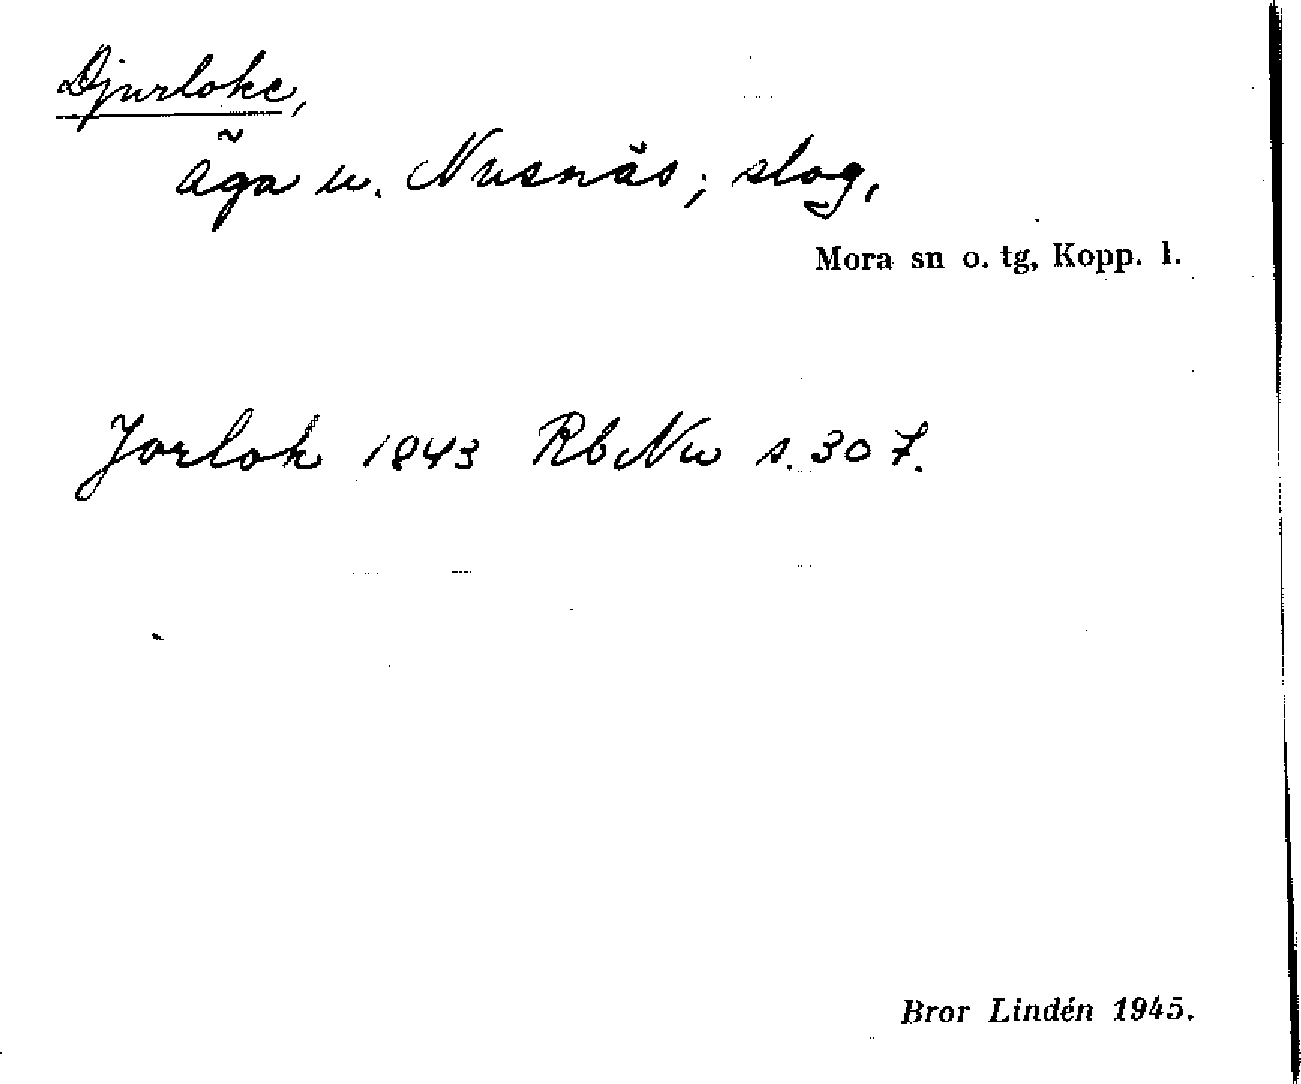 Djurloke,
äga u. Nusnäs; slog,
Mora sn o. tg, Kopp. l.
Jorlok 1843 RbNu s. 307.
Bror Lindén 1945.